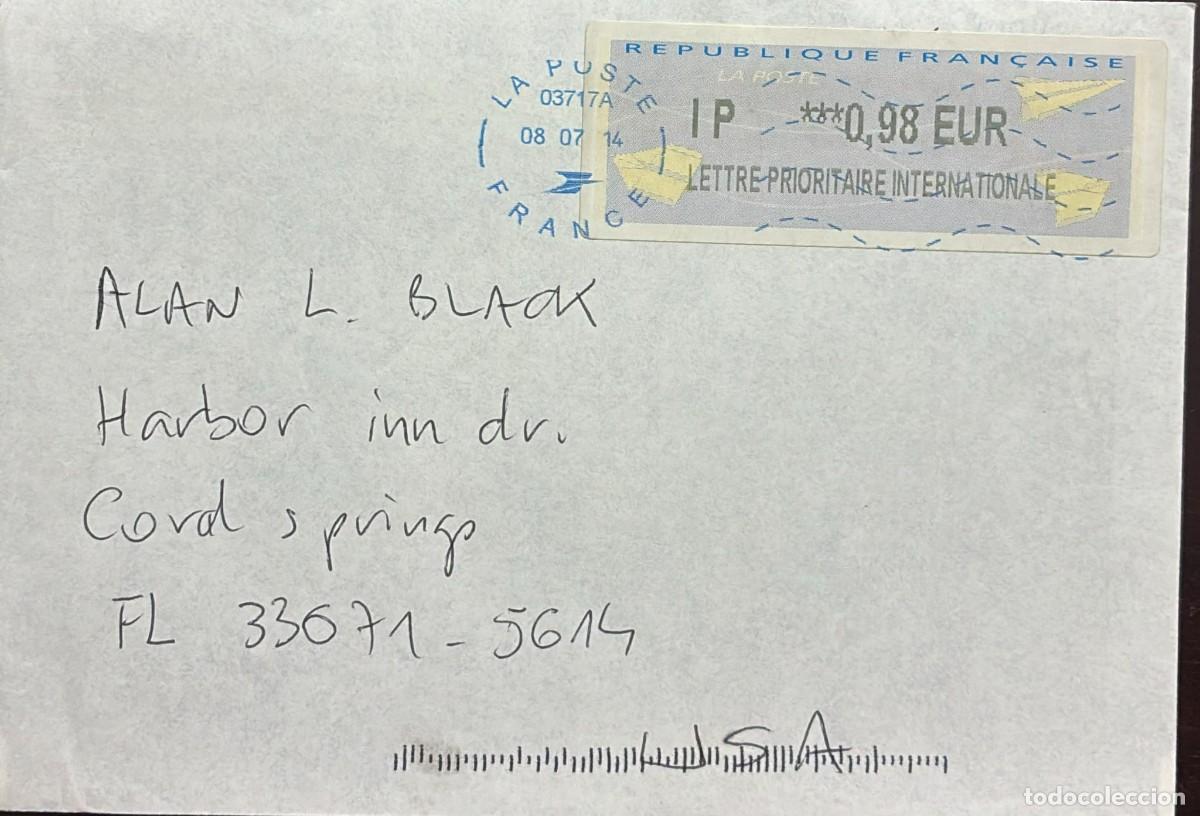 REPUBLIQUE FRANÇAISE
LA POSTE
LA POSTE
03717A
IP ***0,98 EUR
08 07 14
LETTRE PRIORITAIRE INTERNATIONALE
FRANCE
ALAN L. BLACK
Harbor inn dr.
Coral springs
FL 33071-5614
USA
todocoleccion